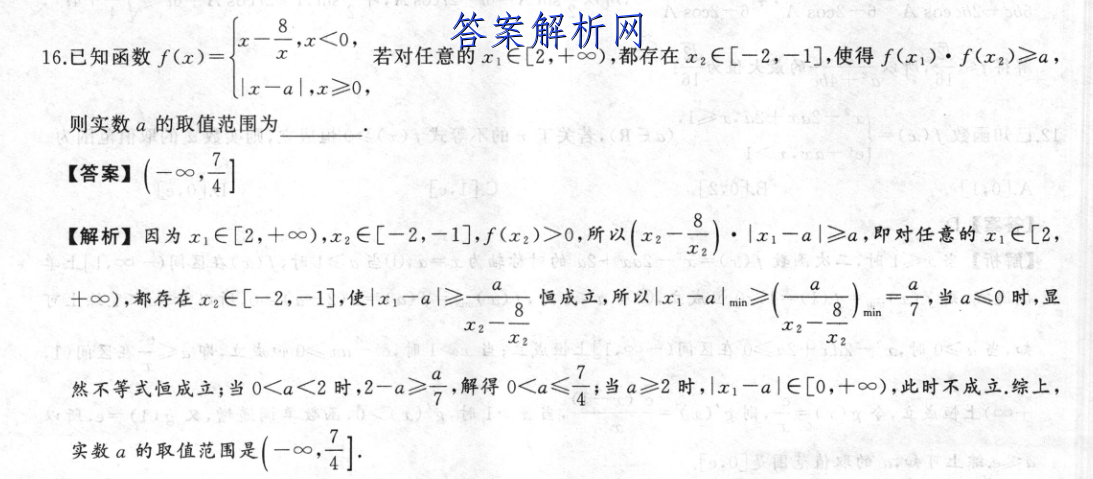 答案解析网
16.已知函数 f(x)={x-8/x,x<0, |x-a|,x≥0, 若对任意的 x₁∈[2,+∞),都存在 x₂∈[-2,-1],使得 f(x₁)·f(x₂)≥a,
则实数 a 的取值范围为________.
【答案】(-∞,7/4]
【解析】因为 x₁∈[2,+∞),x₂∈[-2,-1],f(x₂)>0,所以(x₂-8/x₂)·|x₁-a|≥a,即对任意的 x₁∈[2,
+∞),都存在 x₂∈[-2,-1],使|x₁-a|≥a/(x₂-8/x₂)恒成立,所以|x₁-a|min≥(a/(x₂-8/x₂))min=a/7,当 a≤0 时,显
然不等式恒成立;当 0<a<2 时,2-a≥a/7,解得 0<a≤7/4;当 a≥2 时,|x₁-a|∈[0,+∞),此时不成立.综上,
实数 a 的取值范围是(-∞,7/4].